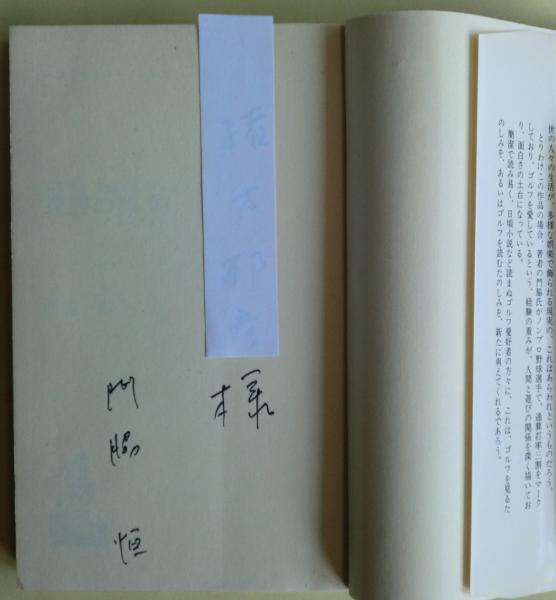 世の人々の生活が、多様な娯楽で飾られる現実の、これはあらわれというものだろう。
とりわけこの作品の場合、著者の門脇氏がノンプロ野球選手で、通算打率三割をマーク
しており、ゴルフを愛しているという、経験の重みが、人間と遊びの関係を深く描いてお
り、面白さの土台になっている。
簡潔で読み易く、日頃小説など読まぬゴルフ愛好者の方々に、これは、ゴルフを見るた
のしみを、あるいはゴルフを読むたのしみを、新たに与えてくれるであろう。
様
門脇恒